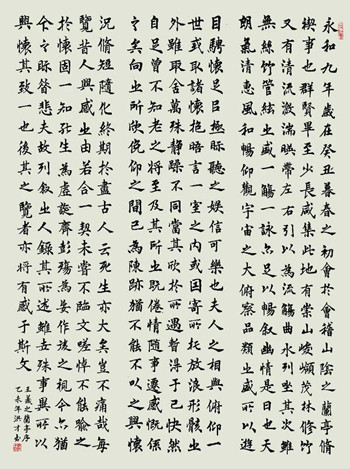 永和九年歲在癸丑暮春之初會於會稽山陰之蘭亭脩
禊事也群賢畢至少長咸集此地有崇山峻領茂林修竹
又有清流激湍暎帶左右引以為流觴曲水列坐其次雖
無絲竹管絃之盛一觴一詠亦足以暢叙幽情是日也天
朗氣清惠風和暢仰觀宇宙之大俯察品類之盛所以遊
目騁懷足以極眎聽之娛信可樂也夫人之相與俯仰一
世或取諸懷抱晤言一室之內或因寄所托放浪形骸之
外雖取舍萬殊靜躁不同當其欣於所遇暫得于己快然
自足曾不知老之將至及其所之既倦情隨事遷感慨係
之矣向之所欣俛仰之間已為陳跡猶不能不以之興懷
況脩短隨化終期於盡古人云死生亦大矣豈不痛哉每
覽昔人興感之由若合一契未嘗不臨文嗟悼不能喻之
於懷固一知死生為虛誕齊彭殤為妄作後之視今亦猶
今之眎昔悲夫故列叙之人錄其所述雖世殊事異所以
興懷其致一也後其之覽者亦將有感于斯文
王羲之蘭亭序
乙未年洪才書